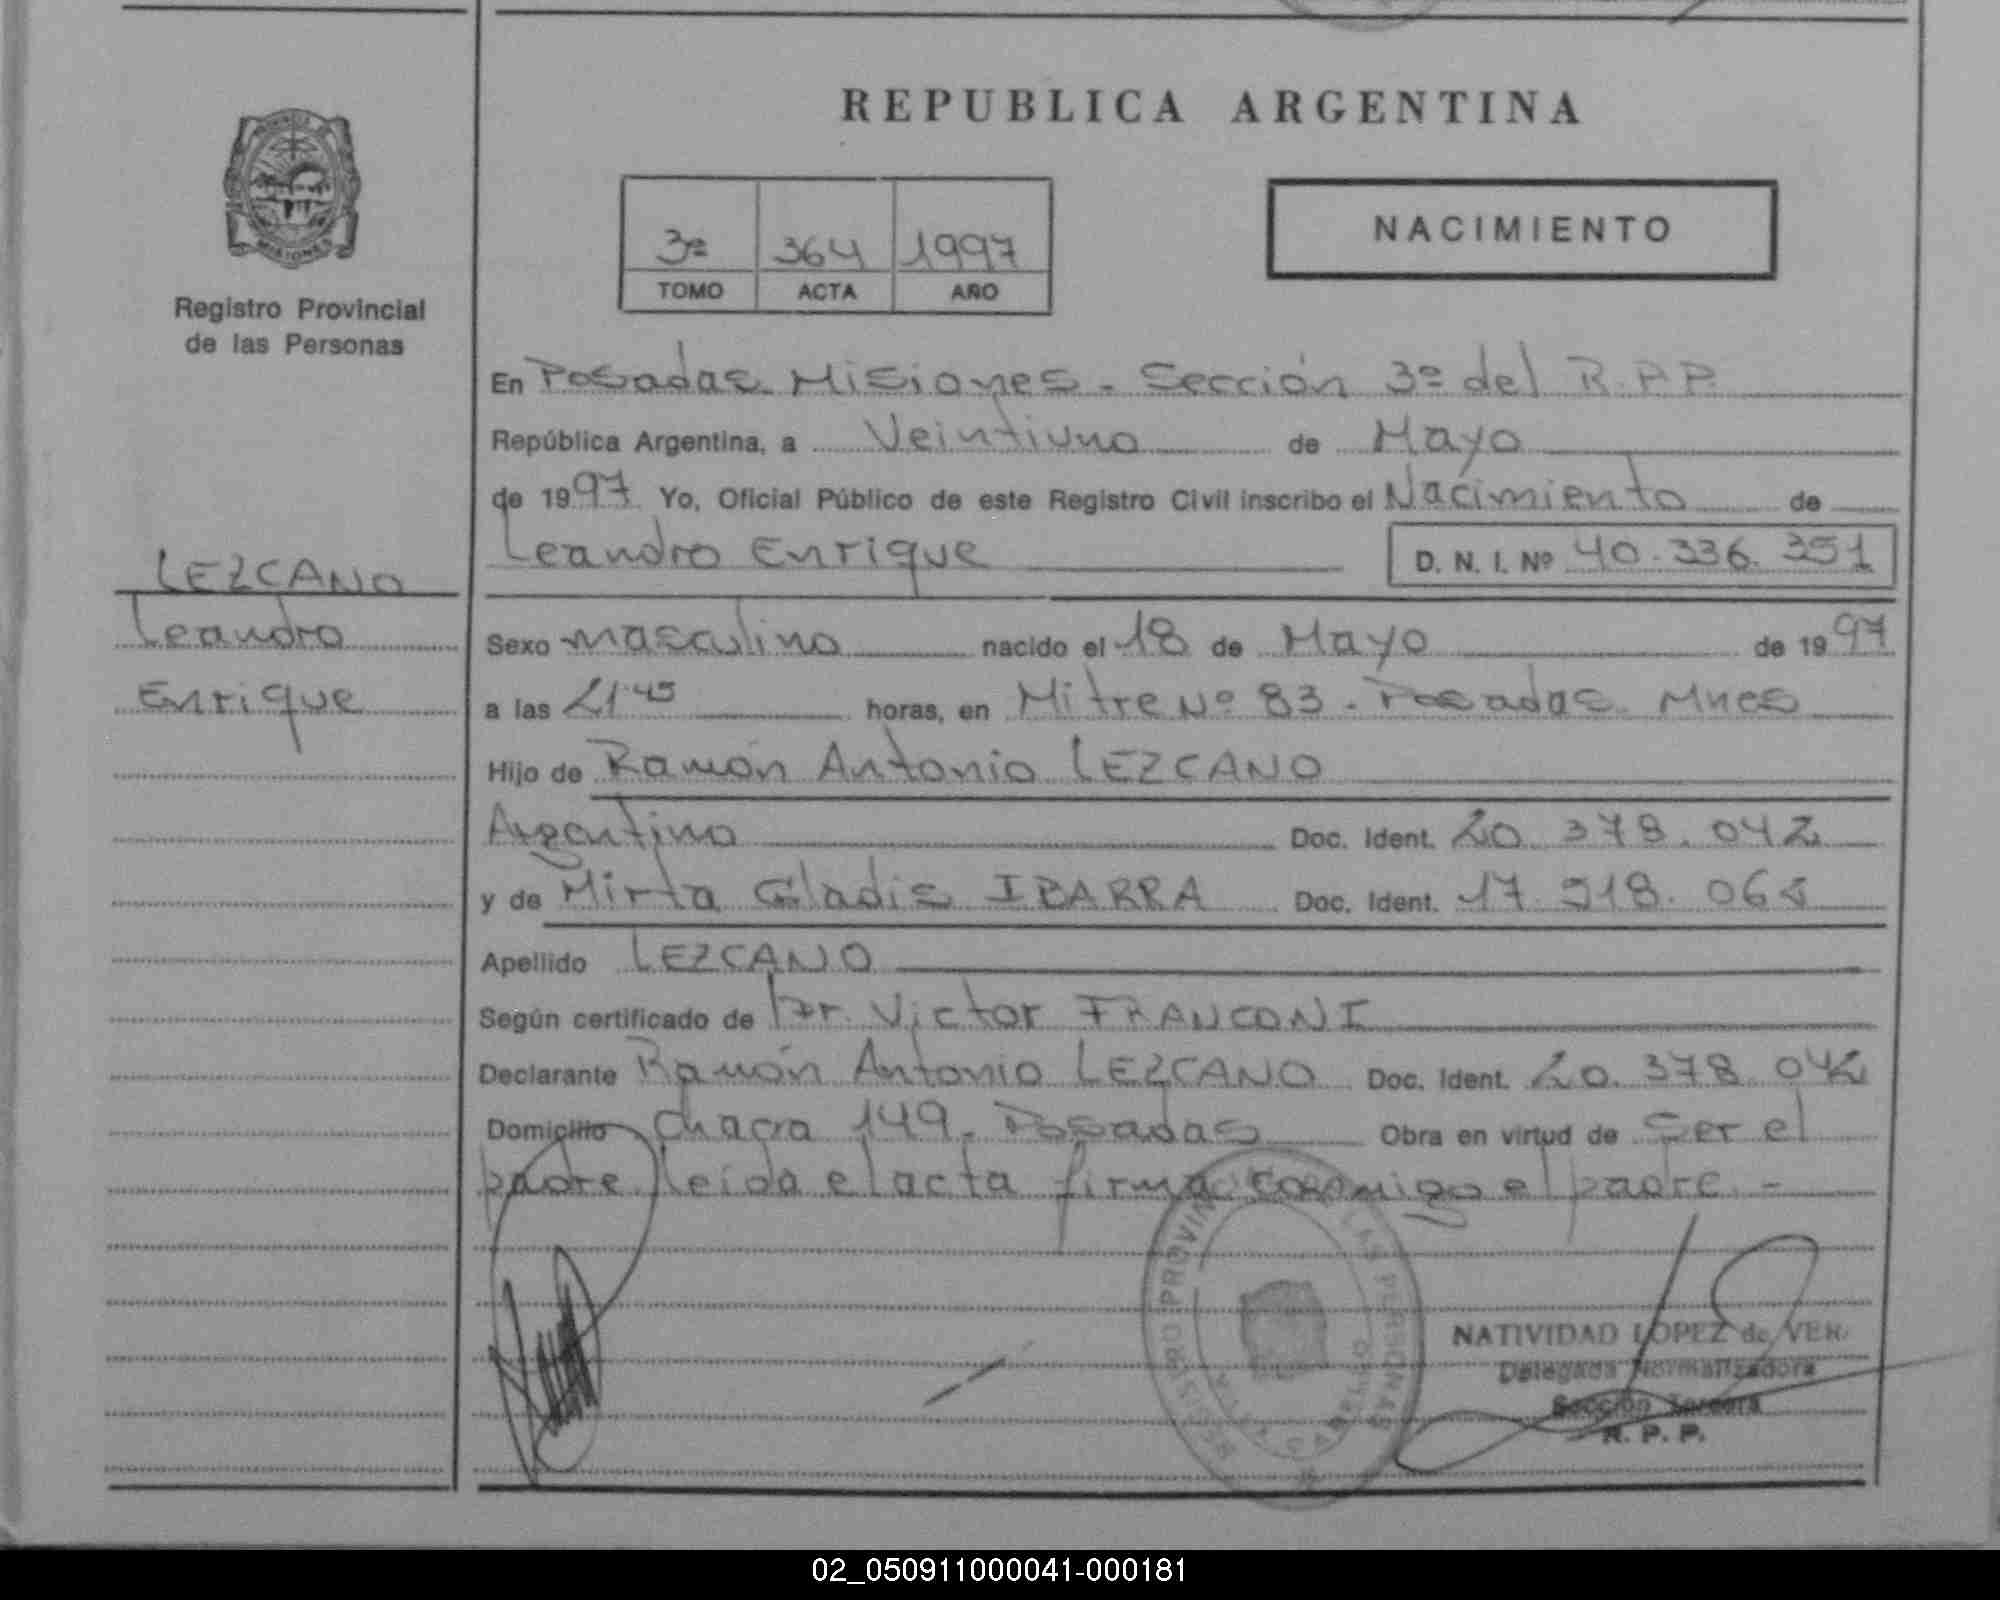 REPUBLICA ARGENTINA
NACIMIENTO
3º 364 1997
TOMO ACTA AÑO
Registro Provincial
de las Personas
En Posadas Misiones - Sección 3º del R.P.P.
República Argentina, a Veintiuno de Mayo
de 1997 Yo, Oficial Público de este Registro Civil inscribo el Nacimiento de
Leandro Enrique D. N. I. Nº 40.336.351
LEZCANO
Leandro
Enrique
Sexo masculino nacido el 18 de Mayo de 1997
a las 21.45 horas, en Mitre Nº 83 - Posadas Mnes
Hijo de Ramón Antonio LEZCANO
Argentino Doc. Ident. 20.378.042
y de Mirta Gladis IBARRA Doc. Ident.
Apellido LEZCANO
Según certificado de Dr. Victor FRANCONI
Declarante Ramón Antonio LEZCANO Doc. Ident. 20.378.042
Domicilio Chacra 149 - Posadas Obra en virtud de Ser el
padre leida el acta firma conmigo el padre. -
REGISTRO PROVINCIAL LAS PERSONAS
NATIVIDAD LOPEZ de VER
Delegada Normalizadora
Sección Tercera
R. P. P.
02_050911000041-000181